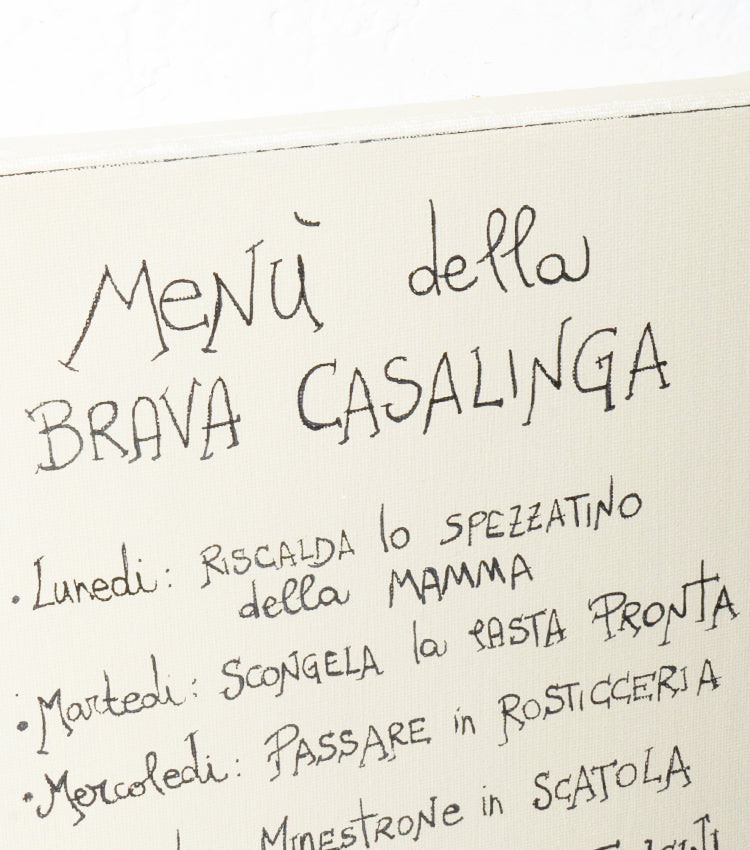 MeNÙ della
BRAVA CASALINGA
• Lunedì: RISCALDA lo SPEZZATINO
della MAMMA
• Martedì: SCONGELA la PASTA PRONTA
• Mercoledì: PASSARE in ROSTICCERIA
MINESTRONe in SCATOLA